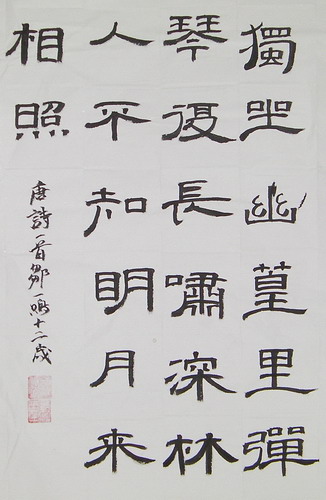 獨坐幽篁里彈
琴復長嘯深林
人不知明月来
相照
唐詩一首鄒十二歲